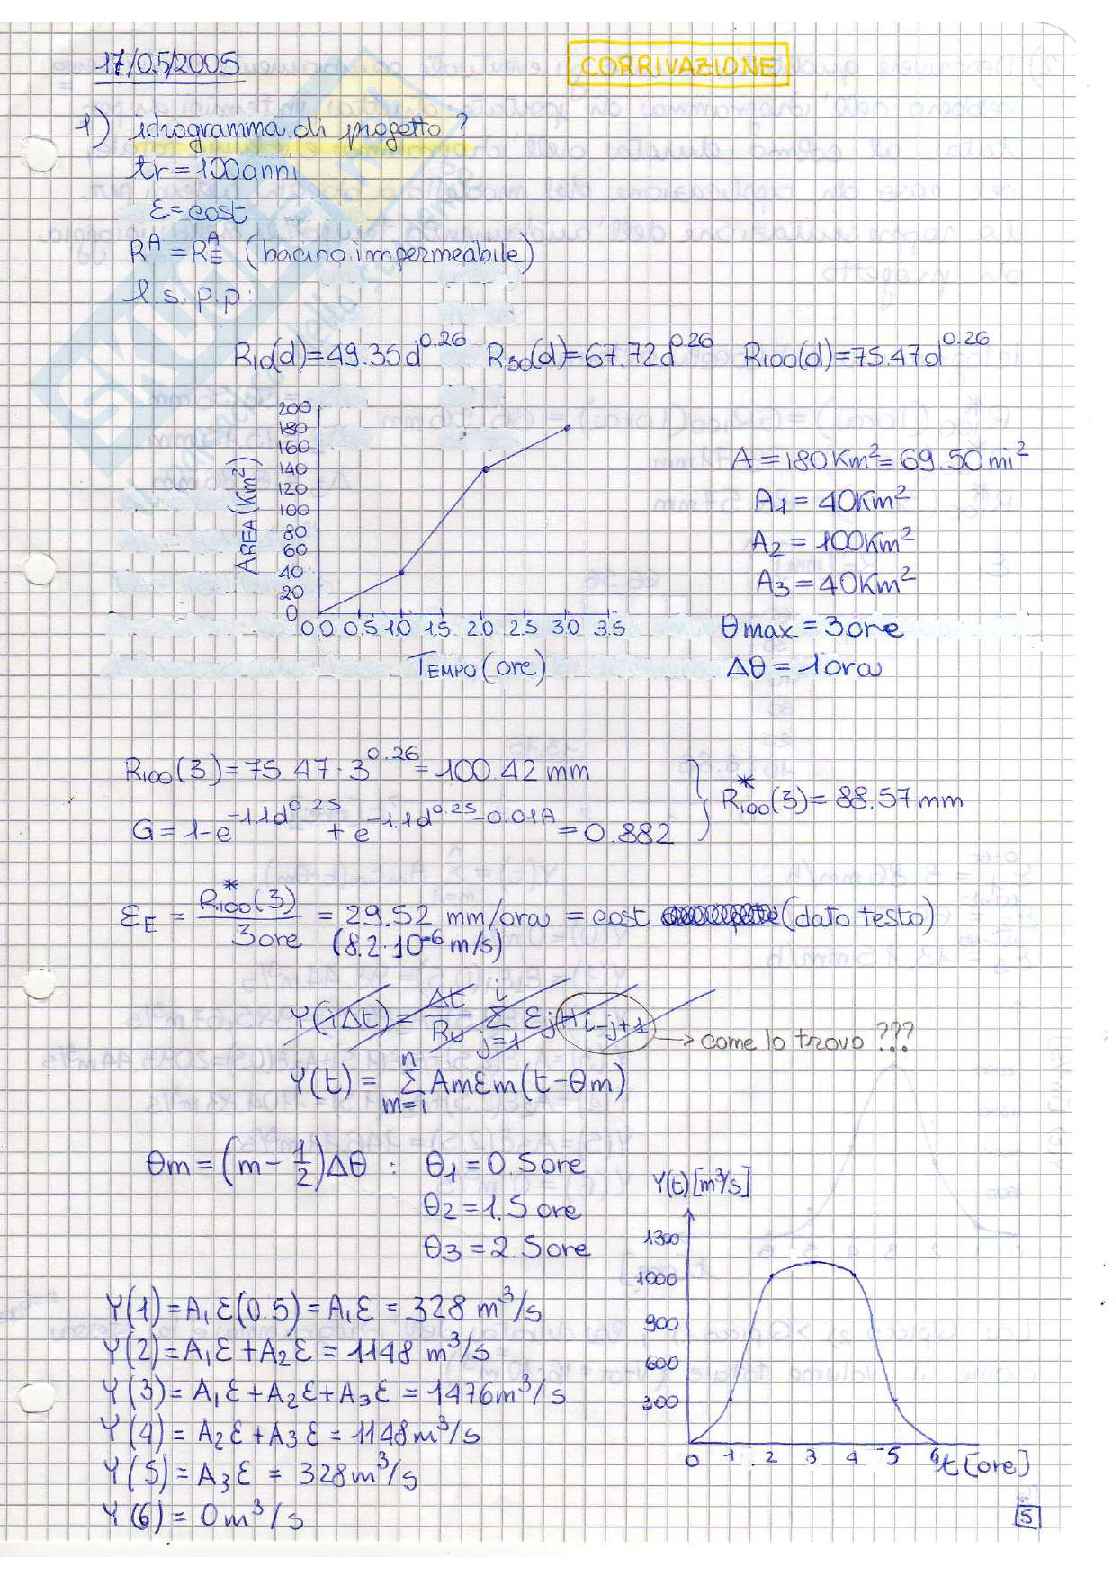 17/05/2005
CORRIVAZIONE
1) idrogramma di progetto?
tr = 100 anni
ε = cost
R^A = R_E^A (bacino impermeabile)
l.s.p.p.:
R10(d)=49.35d^0.26 R50(d)=67.72d^0.26 R100(d)=75.47d^0.26
200
180
160
140
120
100
80
60
40
20
0
AREA (Km²)
0.0 0.5 1.0 1.5 2.0 2.5 3.0 3.5
TEMPO (ore)
A = 180 Km² = 69.50 mi²
A1 = 40 Km²
A2 = 100 Km²
A3 = 40 Km²
θmax = 3 ore
Δθ = 1 ora
R100(3) = 75.47 · 3^0.26 = 100.42 mm
G = 1-e^-1.1d^0.25 + e^-1.1d^0.25-0.01A = 0.882
R*100(3) = 88.57 mm
εE = R*100(3) / 3 ore = 29.52 mm/ora = cost (dato testo)
(8.2·10^-6 m/s)
Y(iΔt) = Δt/Ru Σ_{j=1}^{i} εj H i-j+1 → come lo trovo ???
Y(t) = Σ_{m=1}^{n} Am εm (t-θm)
θm = (m - 1/2) Δθ : θ1 = 0.5 ore
θ2 = 1.5 ore
θ3 = 2.5 ore
Y(1) = A1 ε(0.5) = A1 ε = 328 m³/s
Y(2) = A1ε + A2ε = 1148 m³/s
Y(3) = A1ε + A2ε + A3ε = 1476 m³/s
Y(4) = A2ε + A3ε = 1148 m³/s
Y(5) = A3ε = 328 m³/s
Y(6) = 0 m³/s
Y(t) [m³/s]
1300
1000
900
600
300
0 1 2 3 4 5 6 t [ore]
5